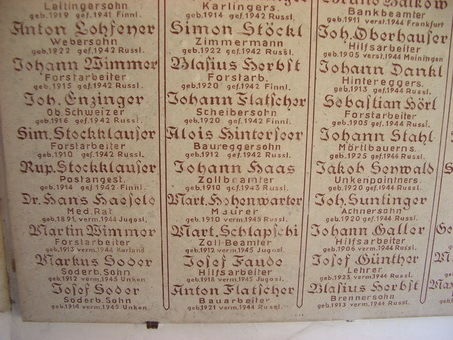 Leitingersohn
geb.1919 gef.1941 Finnl.
Anton Lohfeyer
Webersohn
geb.1922 gef.1942 Russl.
Johann Wimmer
Forstarbeiter
geb.1915 gef.1942 Russl.
Joh. Enzinger
Ob. Schweizer
geb.1916 gef.1942 Russl.
Sim. Stockklauser
Forstarbeiter
geb.1910 gef.1942 Russl.
Rup. Stockklauser
Postangest.
geb.1914 gef.1942 Finnl.
Dr. Hans Haesele
Med. Rat
geb.1891 verm.1944 Jugosl.
Martin Wimmer
Forstarbeiter
geb.1913 verm.1944
Markus Soder
Soderb. Sohn
geb.1912 verm.1945 Unken
Josef Soder
Soderb. Sohn
geb.1914 verm.1945 Unken
Karlingers.
geb.1914 gef.1942 Russl.
Simon Stöckl
Zimmermann
geb.1922 gef.1942 Russl.
Blasius Herbst
Forstarb.
geb.1920 gef.1942 Finnl.
Johann Flatscher
Scheibersohn
geb.1920 gef.1942 Finnl.
Alois Hinterseer
Baureggersohn
geb.1912 gef.1942 Russl.
Johann Haas
Zollbeamter
geb.1910 gef.1943 Russl.
Mart. Hohenwarter
Maurer
geb.1910 verm.1945 Russl.
Mart. Schlapschi
Zoll-Beamter
geb.1912 verm.1945 Jugosl.
Josef Faude
Hilfsarbeiter
geb.1918 verm.1945 Russl.
Anton Flatscher
Bauarbeiter
geb.1921 verm.1944 Russl.
Bruno Balkow
Bankbeamter
geb.1911 verst.1944 Frankfurt
Joh. Oberhauser
Hilfsarbeiter
geb.1905 verst.1944 Meiningen
Johann Dankl
Hintereggers.
geb.1913 gef.1944 Russl.
Sebastian Hörl
Forstarbeiter
geb.1905 gef.1944 Russl.
Johann Stahl
Mörtlbauerns.
geb.1925 gef.1944 Russl.
Jakob Senwald
Unkenpointners
geb.1920 gef.1944 Russl.
Joh. Guntinger
Achnersohn
geb.1920 gef.1944 Russl.
Johann Galler
Hilfsarbeiter
geb.1906 verm.1944 Russl.
Josef Günther
Lehrer
geb.1923 verm.1944 Russl.
Blasius Herbst
Brennersohn
geb.1913 verm.1944 Russl.